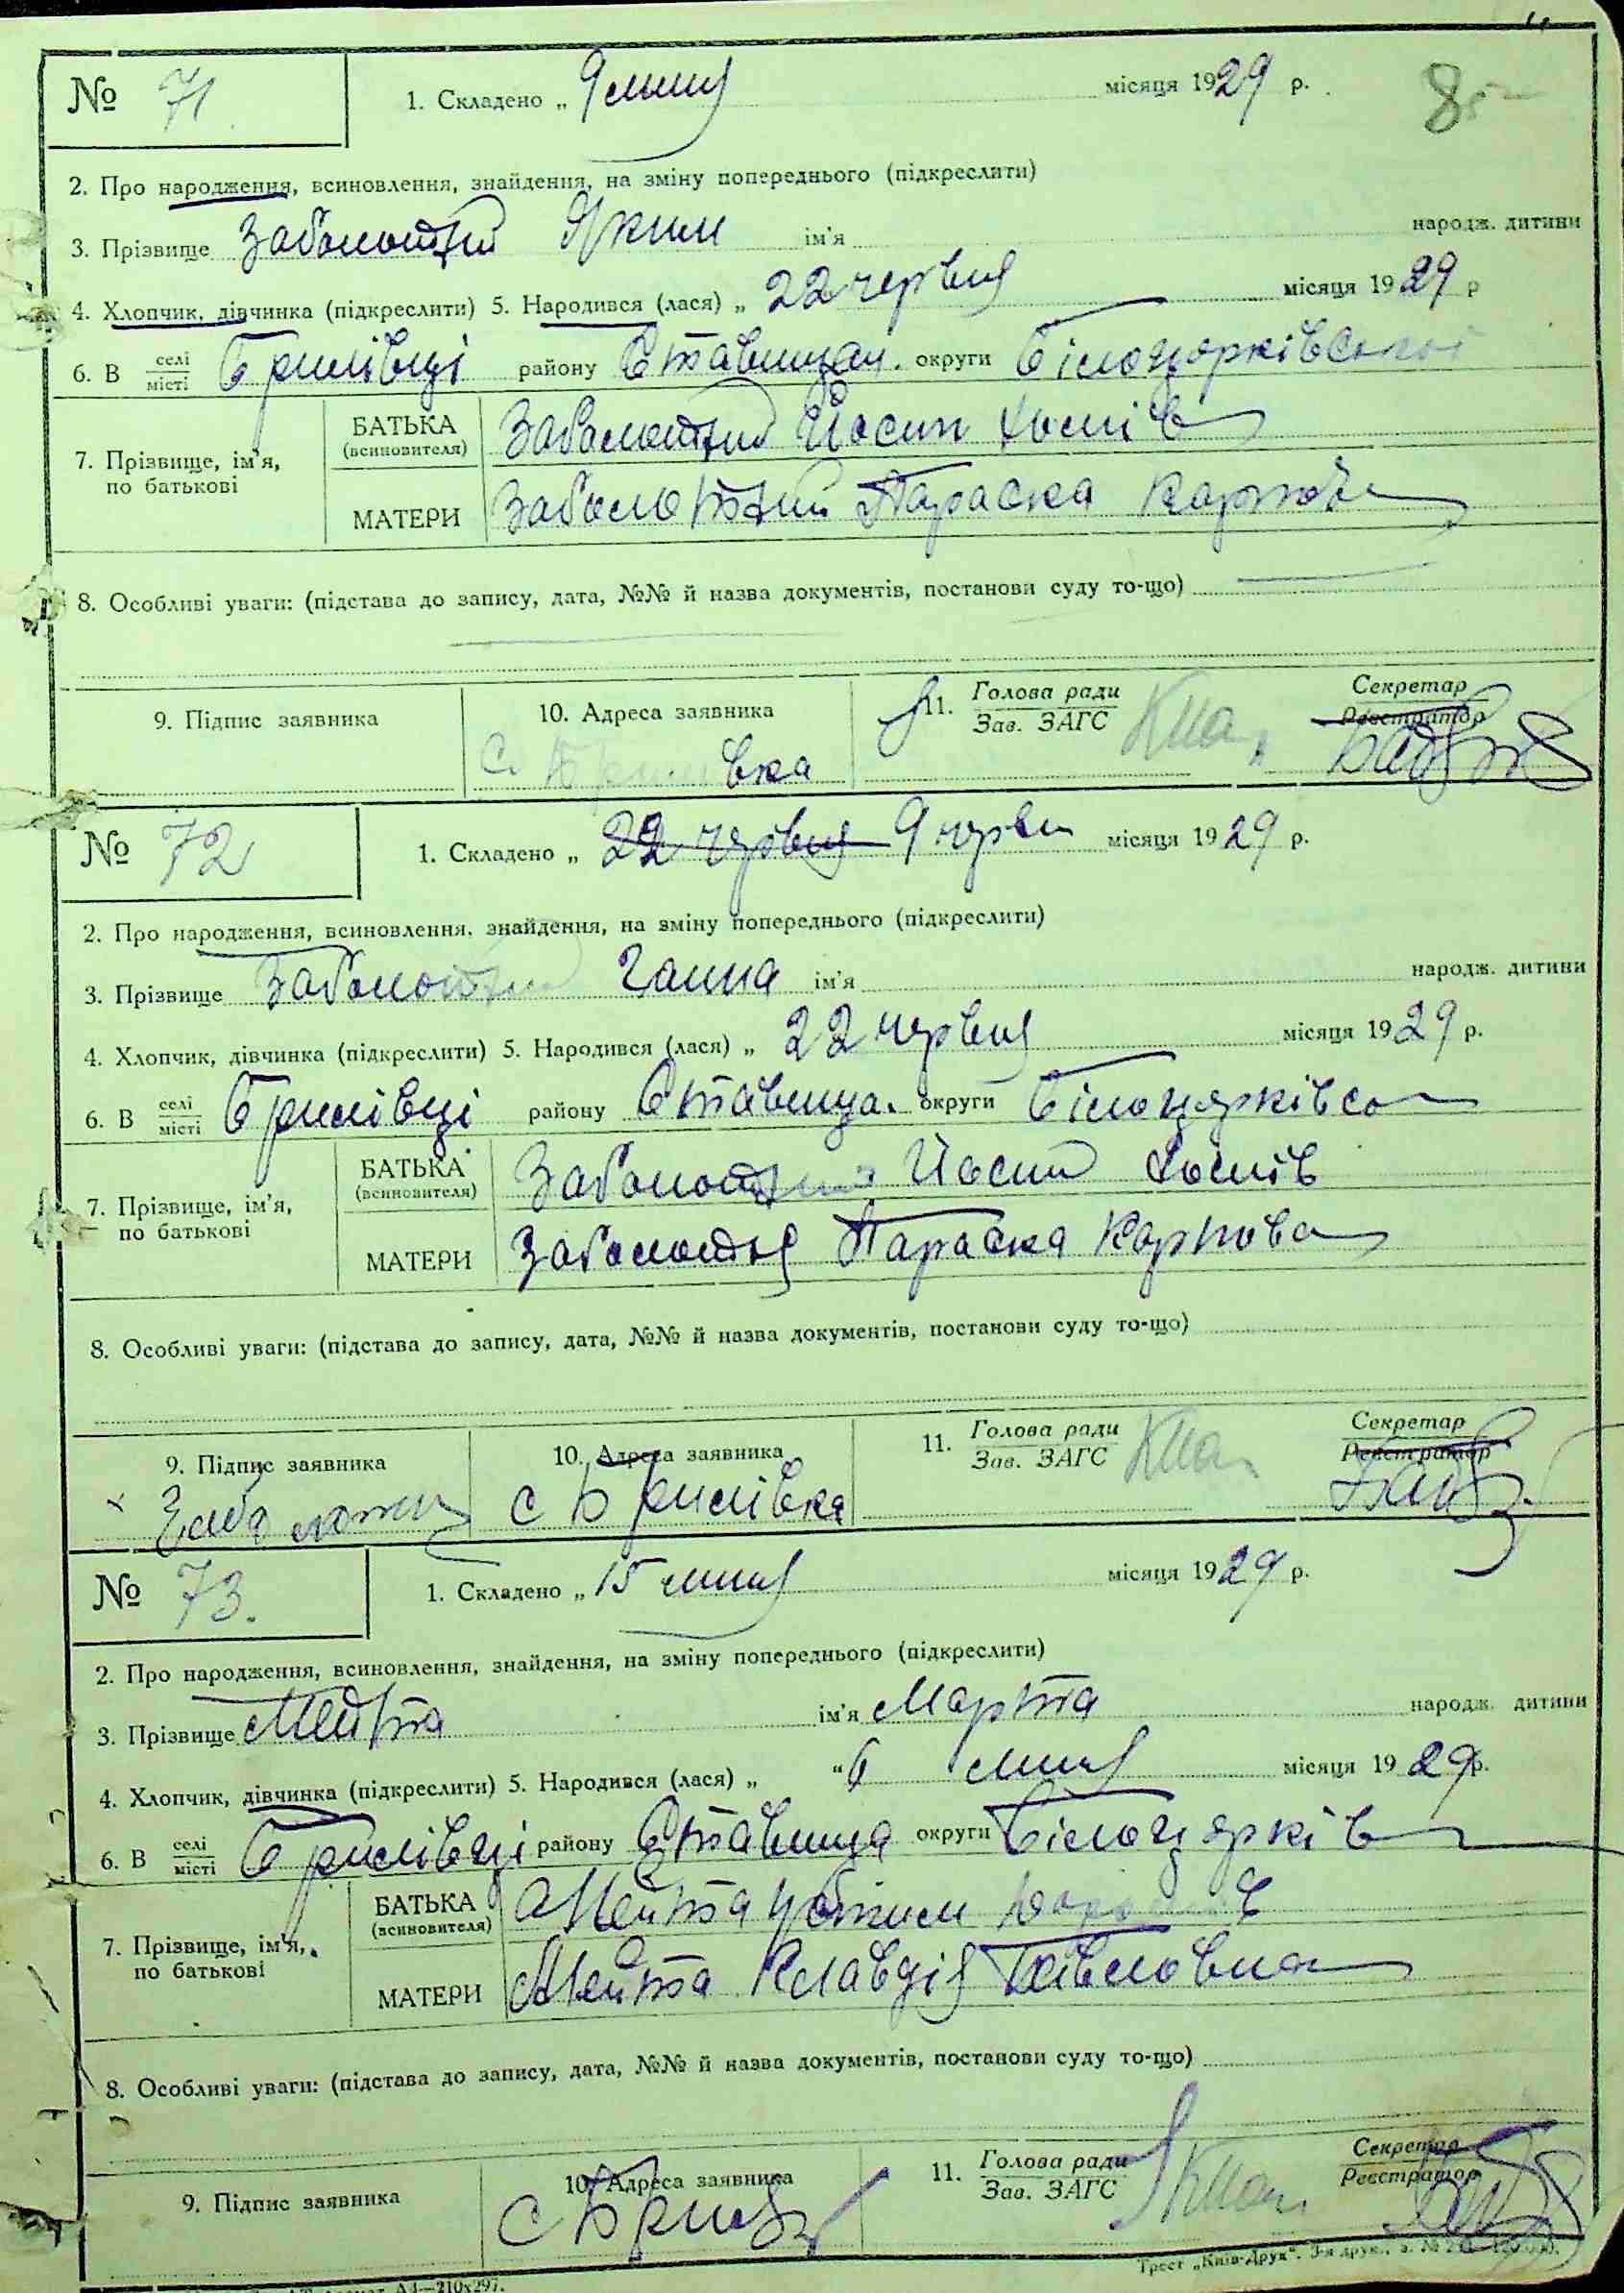 № 71 1. Складено „ 9 липня місяця 1929 р. 85
2. Про народження, всиновлення, знайдення, на зміну попереднього (підкреслити)
3. Прізвище Заболотний Яким ім'я народж. дитини
4. Хлопчик, дівчинка (підкреслити) 5. Народився (лася) „ 22 червня місяця 1929 р
6. В селі місті Брилівці району Ставищан. округи Білоцерківської
7. Прізвище, ім'я, по батькові
БАТЬКА (всиновителя) Заболотний Йосип
МАТЕРИ Заболотний Параска Карпов
8. Особливі уваги: (підстава до запису, дата, №№ й назва документів, постанови суду то-що)
9. Підпис заявника 10. Адреса заявника 11. Голова ради Зав. ЗАГС Секретар Реєстратор
с. Брилівка
№ 72 1. Складено „ 22 червня 9 червн місяця 1929 р.
2. Про народження, всиновлення, знайдення, на зміну попереднього (підкреслити)
3. Прізвище Заболотний Ганна ім'я народж. дитини
4. Хлопчик, дівчинка (підкреслити) 5. Народився (лася) „ 22 червня місяця 1929 р.
6. В селі місті Брилівці району Ставища. округи Білоцерківсо
7. Прізвище, ім'я, по батькові
БАТЬКА (всиновителя) Заболотний Йосип
МАТЕРИ Заболотня Параска Карпова
8. Особливі уваги: (підстава до запису, дата, №№ й назва документів, постанови суду то-що)
9. Підпис заявника 10. Адреса заявника 11. Голова ради Зав. ЗАГС Секретар Реєстратор
с Брилівка
№ 73. 1. Складено „ 15 липня місяця 1929 р.
2. Про народження, всиновлення, знайдення, на зміну попереднього (підкреслити)
3. Прізвище Мейта ім'я Марта народж. дитини
4. Хлопчик, дівчинка (підкреслити) 5. Народився (лася) „ “6 липня місяця 1929 р.
6. В селі місті Брилівці району Ставища округи Білоцерків
7. Прізвище, ім'я, по батькові
БАТЬКА (всиновителя) Мейта
МАТЕРИ Мейта Клавдія Павловна
8. Особливі уваги: (підстава до запису, дата, №№ й назва документів, постанови суду то-що)
9. Підпис заявника 10. Адреса заявника 11. Голова ради Зав. ЗАГС Секретар Реєстратор
Трест „Київ-Друк“.
А4—210х297.